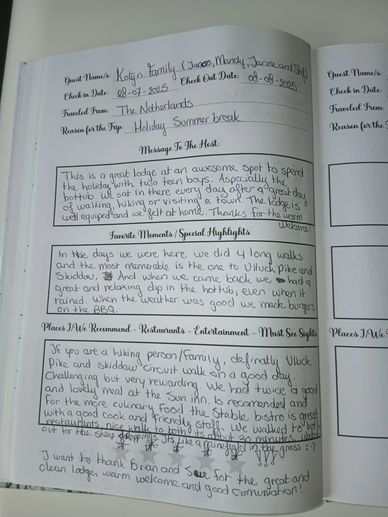 Guest Name/s: Family (Jacco, Mandy, Janne and
Check in Date: 28-07-2025 Check Out Date: 08-08-2025
Traveled From: The Netherlands
Reason for the Trip: Holiday Summer break
Message To The Host:
This is a great lodge at an awesome spot to spend
the holiday with two teen boys. Aspecially the
hottub we sat in there every day after a great day
of walking, hiking or visiting a town. The lodge is
well equiped and we felt at home. Thanks for the warm
welcome!
Favorite Moments / Special Highlights
In the days we were here we did 4 long walks
and the most memorable is the one to Ulluck Pike and
Skiddaw. And when we came back we had a
great and relaxing dip in the hottub, even when it
rained. When the weather was good we made burgers
on the BBQ.
Places I/We Recommend - Restaurants - Entertainment - Must See Sights
If you are a hiking person/family, definatly Ulluck
Pike and Skiddaw circuit walk on a good day.
Challenging but very rewarding. We had twice a good
and lovely meal at the Sun inn. Is recomended and
for the more culinary food the Stable bistro is great
with a good cook and friendly staff. We walked to both
restaurants, nice walk to both its 30 minutes,
out for the sheep droppings. Its like a minefield in the grass :-)
I want to thank Brian and Sue for the great and
clean lodge, warm welcome and good comunication!
Guest Name/s:
Check in Date:
Traveled From:
Reason for the
Places I/We